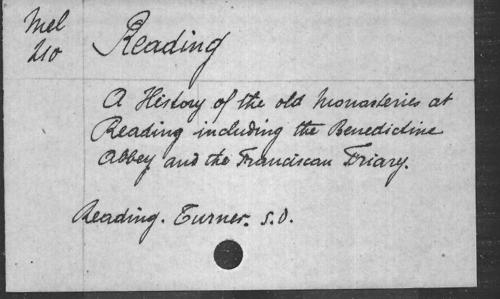 Mel
210
Reading
A History of the old Monasteries at
Reading including the Benedictine
Abbey and the Franciscan Friary.
Reading. Turner. s.d.